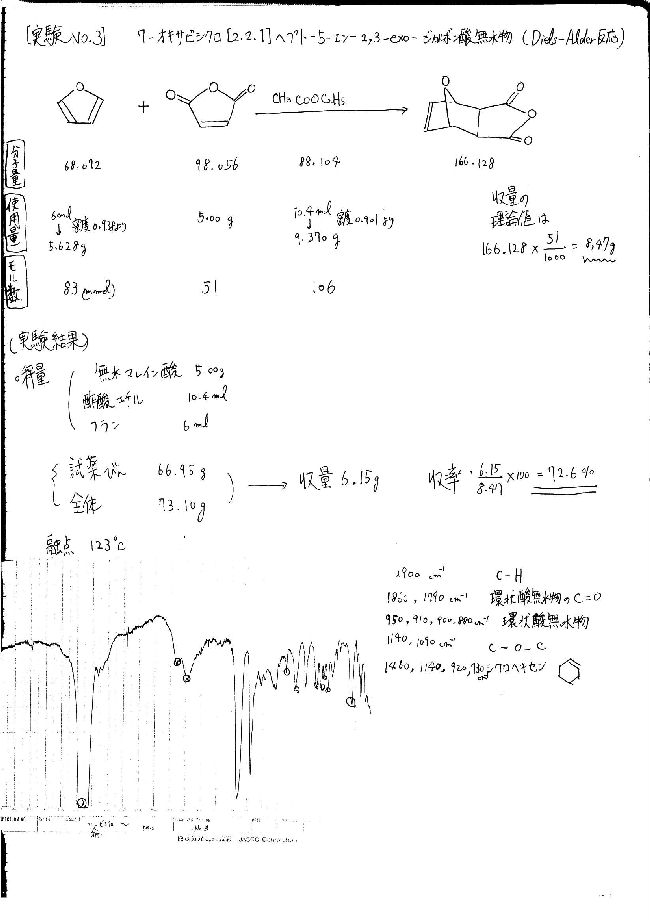 [実験No.3] 7-オキサビシクロ[2.2.1]ヘプト-5-エン-2,3-exo-ジカルボン酸無水物 (Diels-Alder反応)
+ CH3COOC2H5
O O O O O O O O
分子量 68.072 98.056 88.104 166.128
使用量 6.0ml ↓ 密度0.938 5.00g 10.4ml ↓ 密度0.901 収量の
5.628g 9.370g 理論値は
166.128 × 51/1000 = 8.47g
モル数 83(mmol) 51 .06
(実験結果)
○秤量 無水マレイン酸 5.00g
酢酸エチル 10.4ml
フラン 6ml
試薬びん 66.95g
全体 73.10g → 収量 6.15g 収率・6.15/8.47 ×100 = 72.6%
融点 123℃
2900 cm-1 C-H
1860, 1790 cm-1 環状酸無水物のC=O
950, 910, 900, 880cm-1 環状酸無水物
1140, 1090 cm-1 C-O-C
1460, 1140, 920, シクロヘキセン
No 3
JASCO